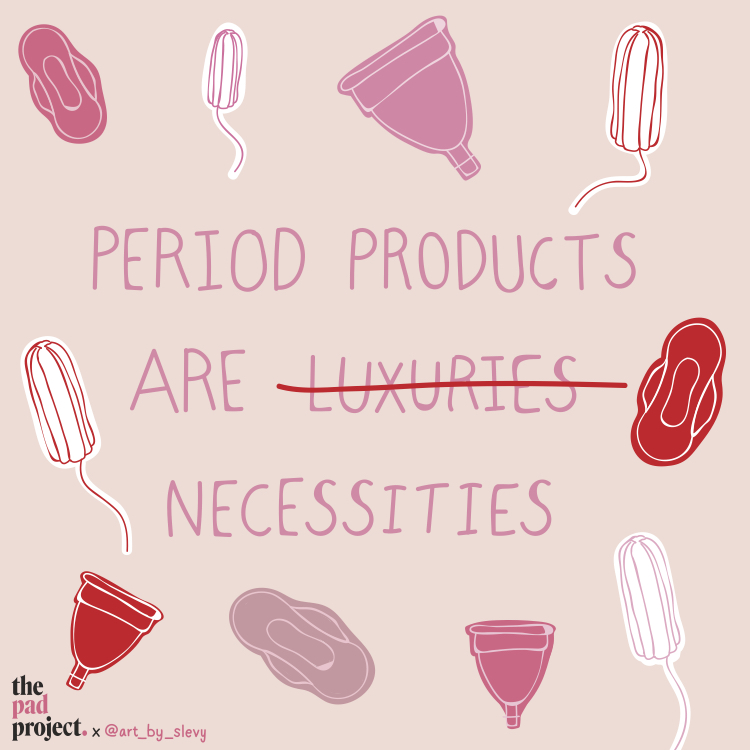 PERIOD PRODUCTS
ARE LUXURIES
NECESSITIES
the
pad
project. x @art_by_slevy